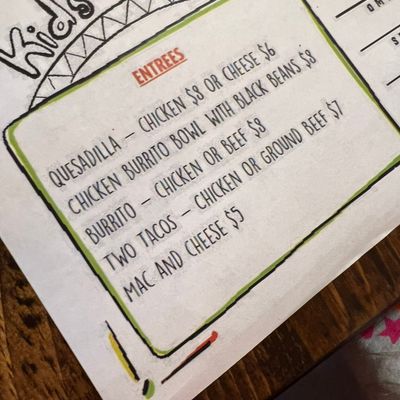 Kids
ENTREES
QUESADILLA – CHICKEN $8 OR CHEESE $6
CHICKEN BURRITO BOWL WITH BLACK BEANS $8
BURRITO – CHICKEN OR BEEF $8
TWO TACOS – CHICKEN OR GROUND BEEF $7
MAC AND CHEESE $5